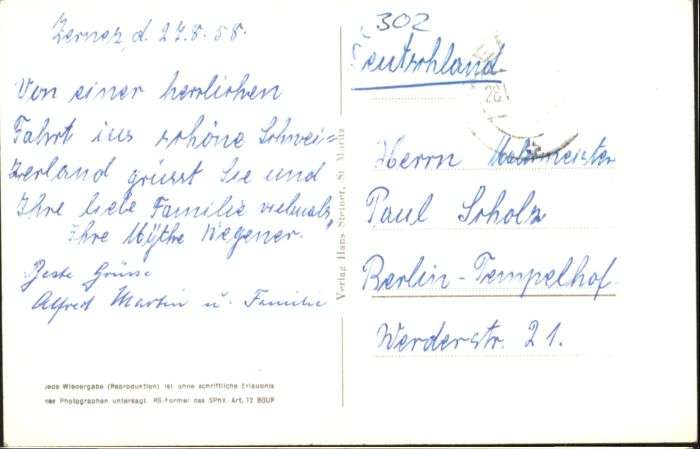 Zernez, d. 27.8.58.
Von einer herrlichen
Fahrt ins schöne Schwei=
zerland grüsst Sie und
Ihre liebe Familie vielmals
Ihre Wegener.
Beste Grüsse
Alfred Martin u. Familie
jede Wiedergabe (Reproduktion) ist ohne schriftliche Erlaubnis
des Photographen untersagt. RS-Formel des SPhV. Art. 12 BGUP
Verlag Hans Steiner, St. Moritz
302
Deutschland
28
Herrn Malermeister
Paul Scholz
Berlin-Tempelhof
Werderstr. 21.